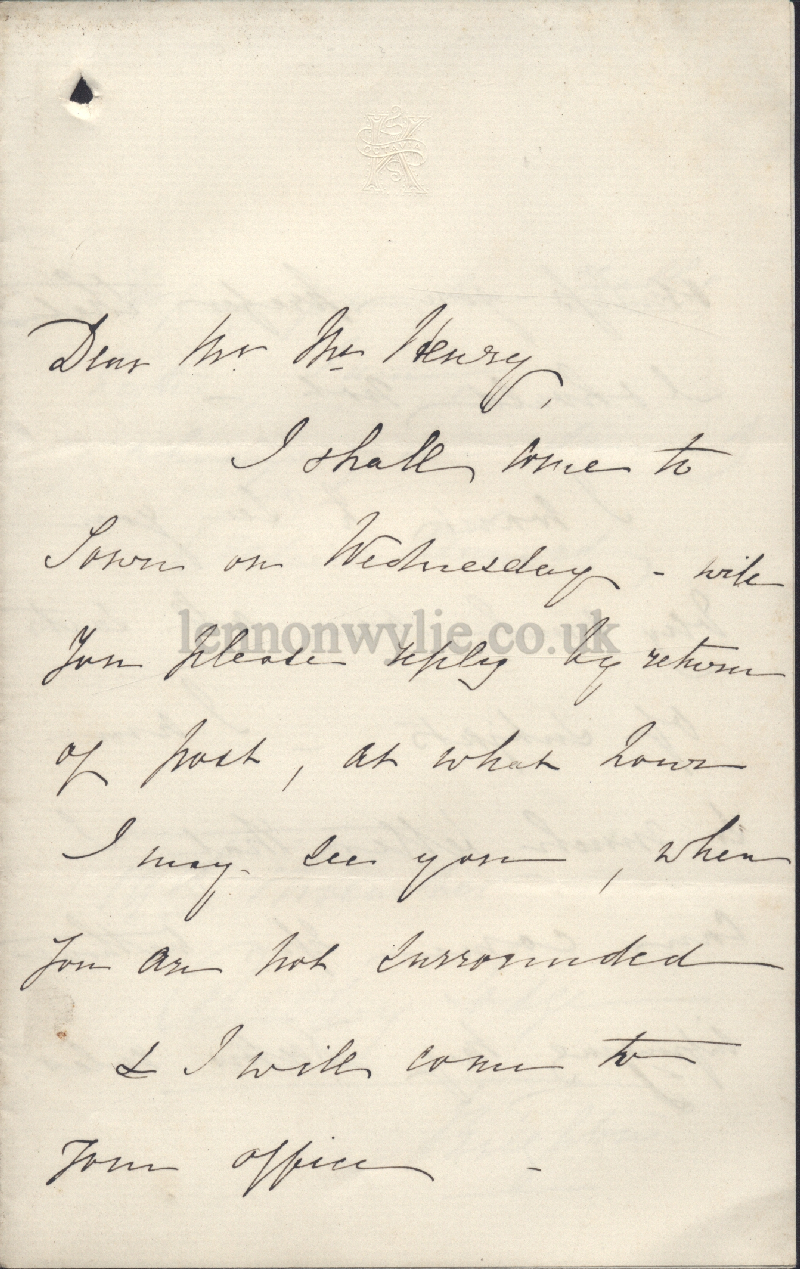 Dear Mr. Mc Henry,
I shall come to
Town on Wednesday - will
you please reply by return
of post, at what hour
I may see you, when
you are not surrounded
& I will come to
your office -
lennonwylie.co.uk